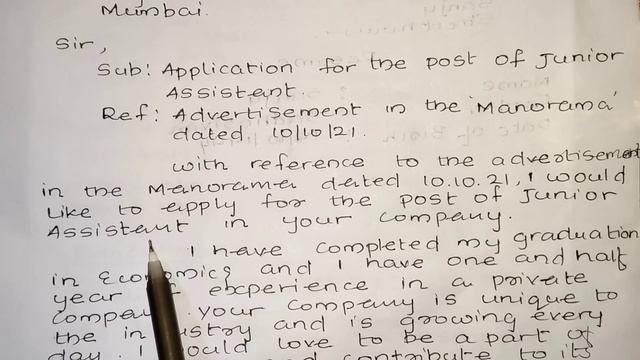 Mumbai.
Sir,
Sub: Application for the post of Junior
Assistant.
Ref: Advertisement in the 'Manorama'
dated 10/10/21.
with reference to the advertisement
in the Manorama dated 10.10.21, I would
like to apply for the post of Junior
Assistant in your company.
I have completed my graduation
in Economics and I have one and half
year of experience in a private
company. your company is unique to
the industry and is growing every
day. I would love to be a part of
contribute to its